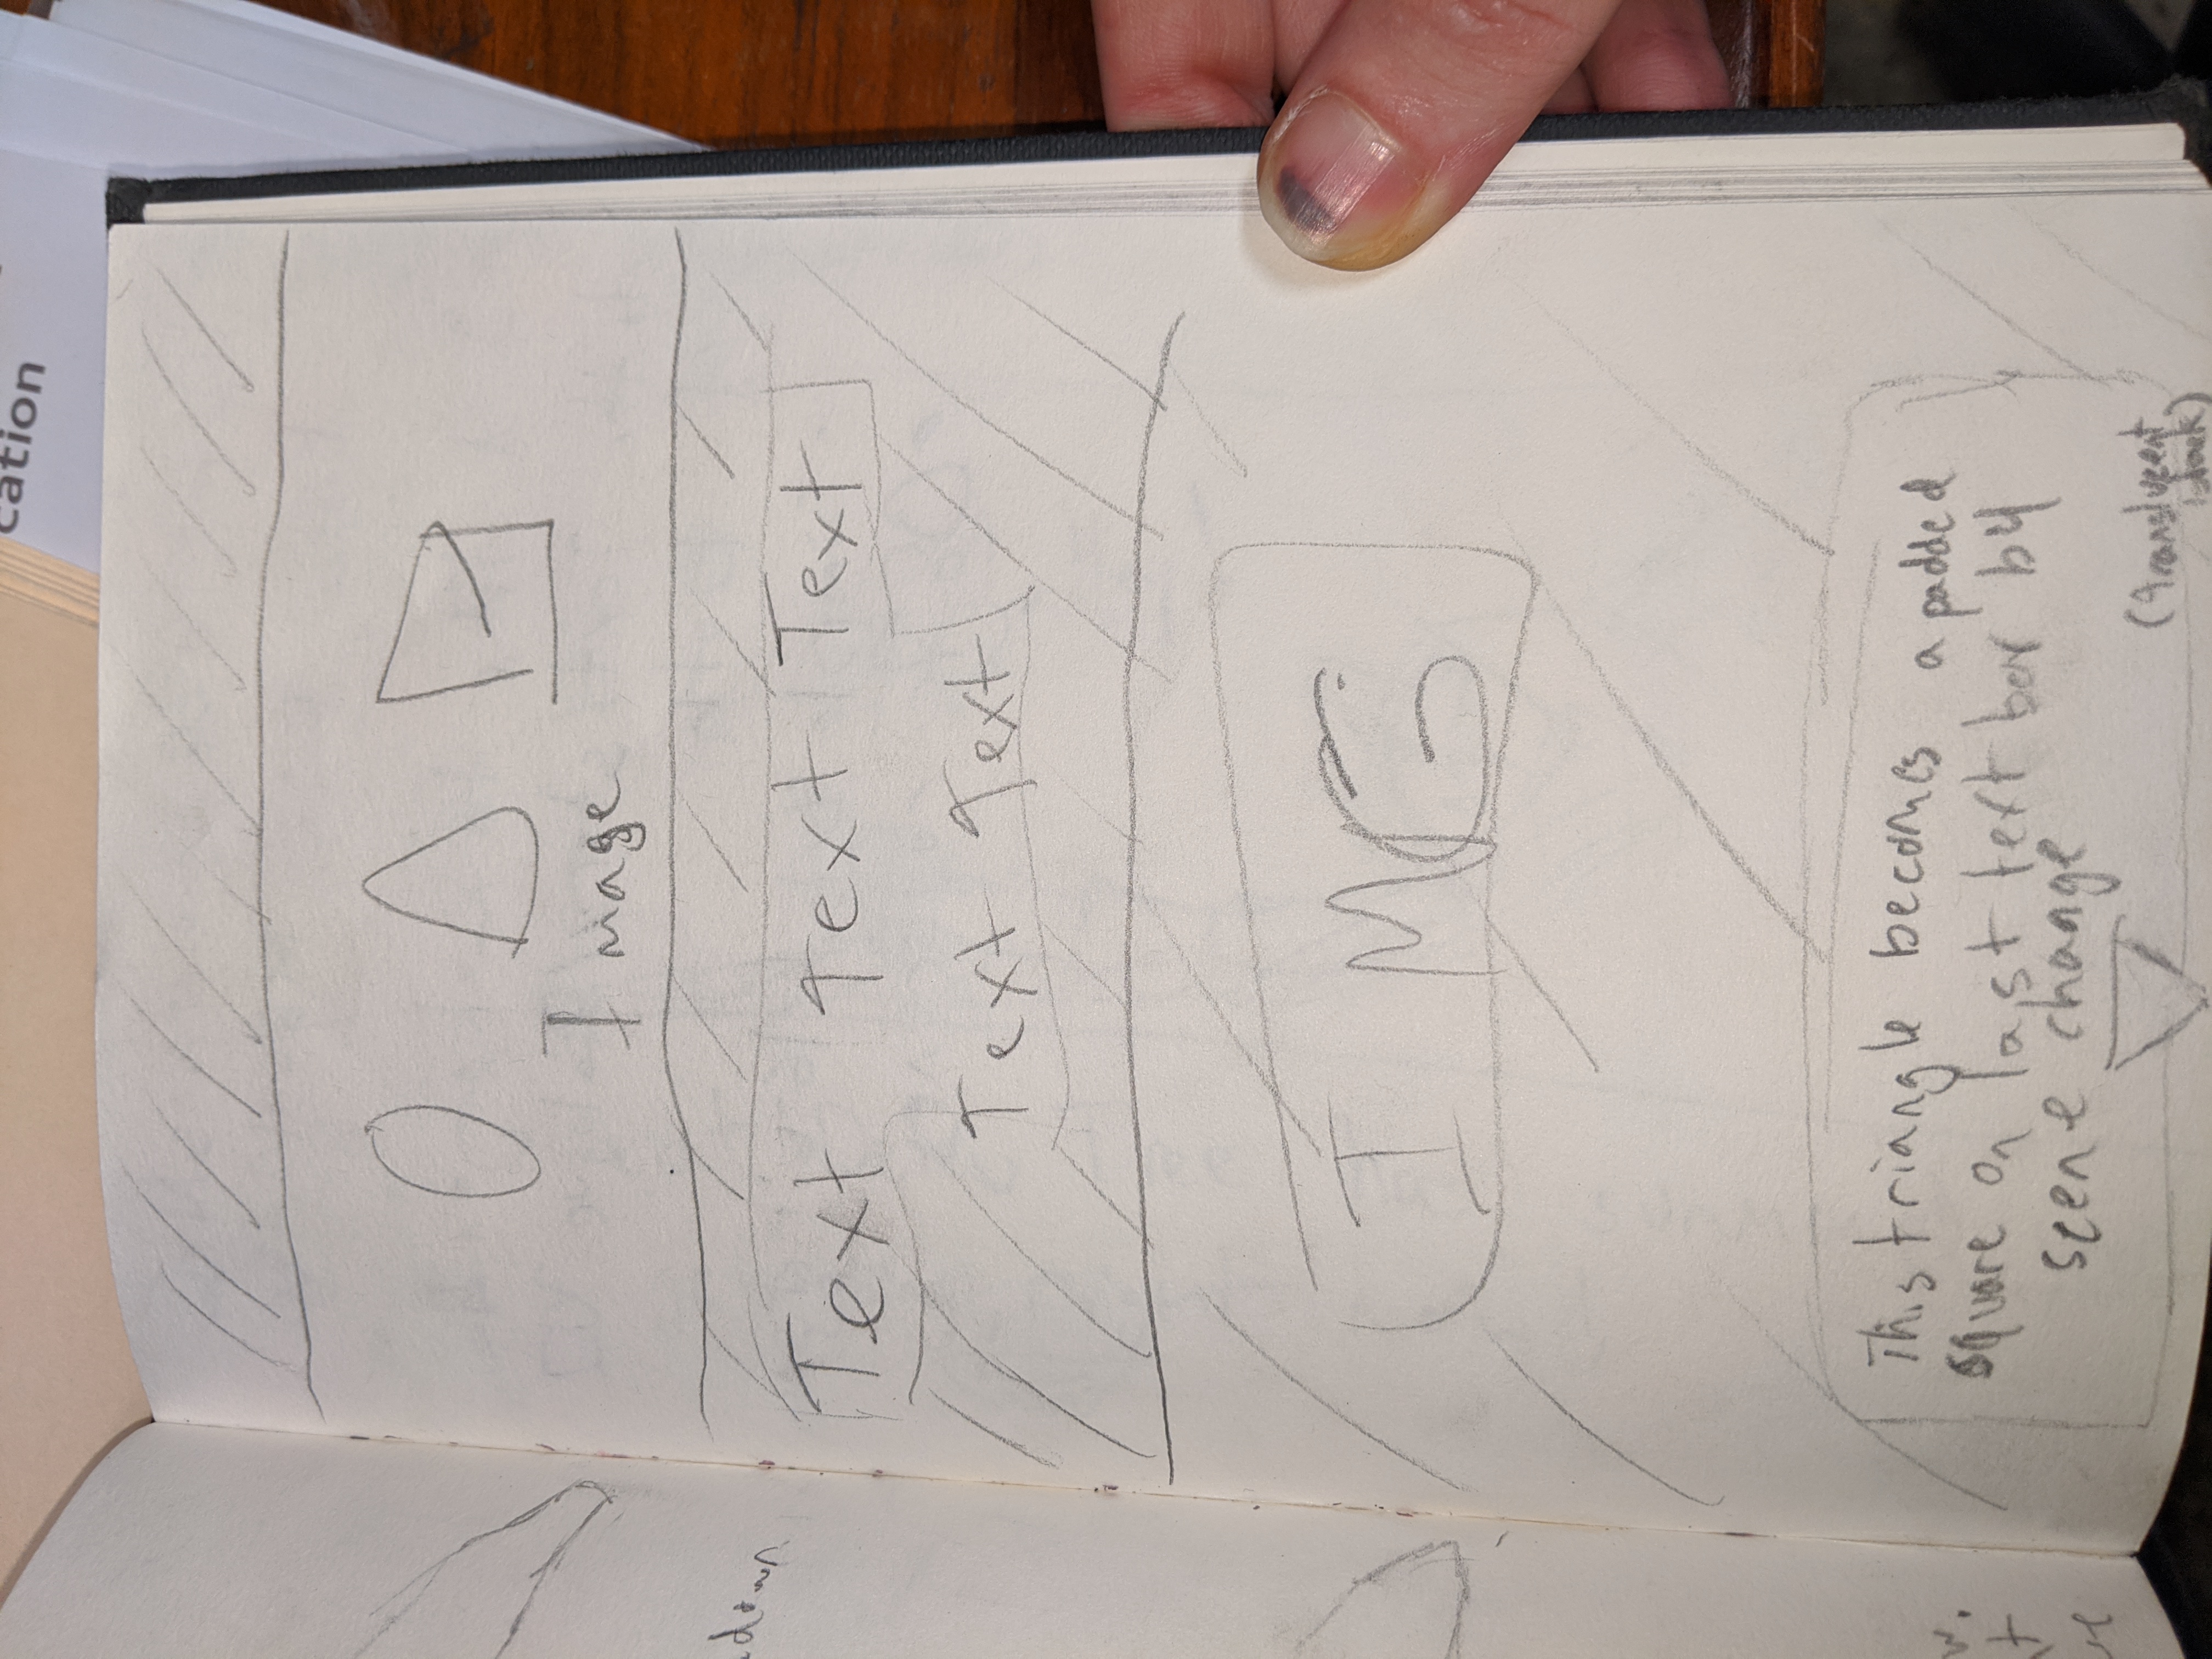 cation
Image
Text Text Text
Text Text
IMG
This triangle becomes a padded
square on last text box by
scene change
(translucent
black)
down
w.